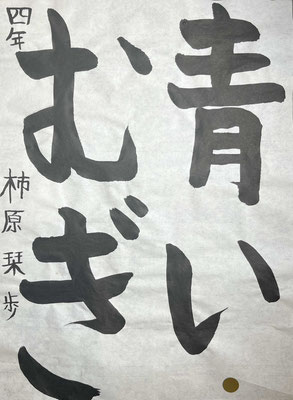 青い
むぎ
四年 柿原栞歩